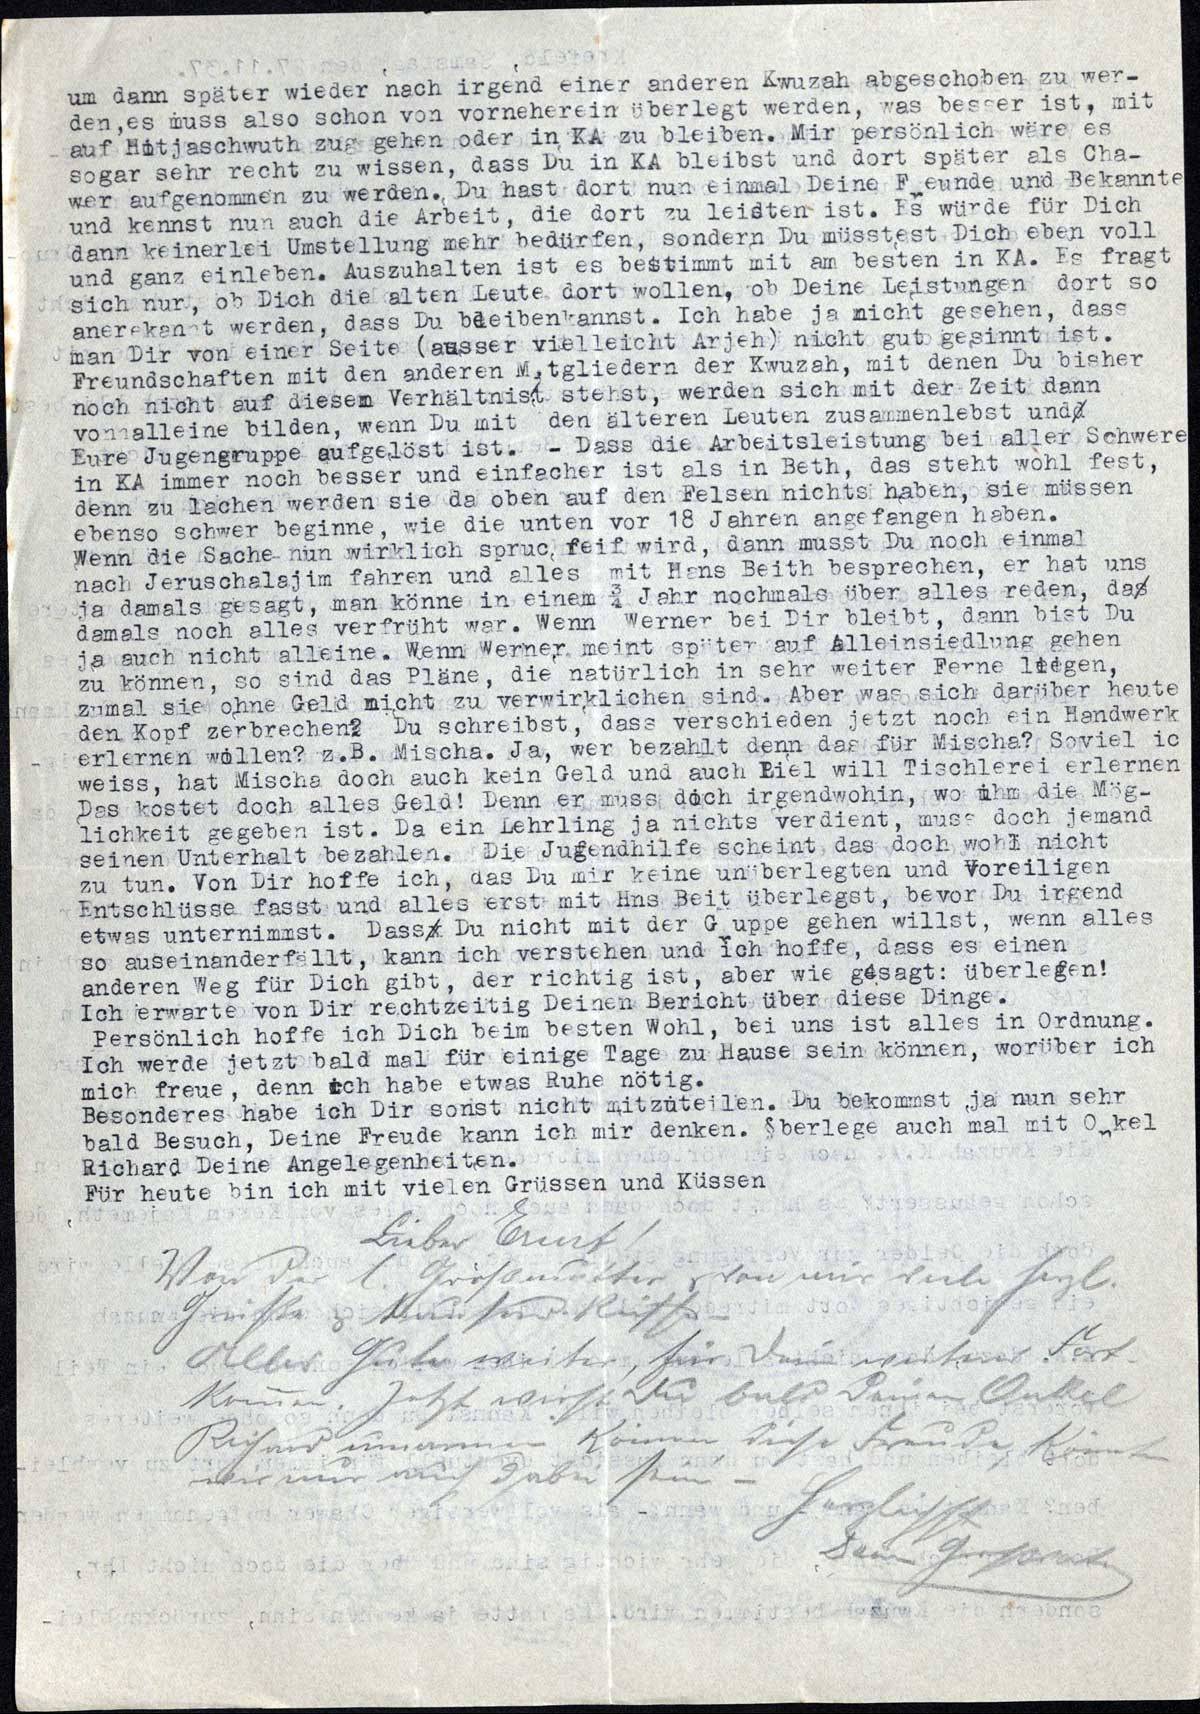 um dann später wieder nach irgend einer anderen Kwuzah abgeschoben zu wer-
den,es muss also schon von vorneherein überlegt werden, was besser ist, mit
auf Hitjaschwuth zug gehen oder in KA zu bleiben. Mir persönlich wäre es
sogar sehr recht zu wissen, dass Du in KA bleibst und dort später als Cha-
wer aufgenommen zu werden. Du hast dort nun einmal Deine F eunde und Bekannte
und kennst nun auch die Arbeit, die dort zu leisten ist. Es würde für Dich
dann keinerlei Umstellung mehr bedürfen, sondern Du müsstest Dich eben voll
und ganz einleben. Auszuhalten ist es bestimmt mit am besten in KA. Es fragt
sich nur, ob Dich die alten Leute dort wollen, ob Deine Leistungen dort so
anerekannt werden, dass Du bleibenkannst. Ich habe ja nicht gesehen, dass
man Dir von einer Seite (ausser vielleicht Arjeh) nicht gut gesinnt ist.
Freundschaften mit den anderen M tgliedern der Kwuzah, mit denen Du bisher
noch nicht auf diesem Verhältnis stehst, werden sich mit der Zeit dann
von alleine bilden, wenn Du mit den älteren Leuten zusammenlebst und
Eure Jugengruppe aufgelöst ist. - Dass die Arbeitsleistung bei aller Schwere
in KA immer noch besser und einfacher ist als in Beth, das steht wohl fest,
denn zu lachen werden sie da oben auf den Felsen nichts haben, sie müssen
ebenso schwer beginne, wie die unten vor 18 Jahren angefangen haben.
Wenn die Sache nun wirklich spruc reif wird, dann musst Du noch einmal
nach Jeruschalajim fahren und alles mit Hans Beith besprechen, er hat uns
ja damals gesagt, man könne in einem Jahr nochmals über alles reden, das
damals noch alles verfrüht war. Wenn Werner bei Dir bleibt, dann bist Du
ja auch nicht alleine. Wenn Werner meint später auf Alleinsiedlung gehen
zu können, so sind das Pläne, die natürlich in sehr weiter Ferne liegen,
zumal sie ohne Geld nicht zu verwirklichen sind. Aber was sich darüber heute
den Kopf zerbrechen? Du schreibst, dass verschieden jetzt noch ein Handwerk
erlernen wollen? z.B. Mischa. Ja, wer bezahlt denn das für Mischa? Soviel ic
weiss, hat Mischa doch auch kein Geld und auch Eiel will Tischlerei erlernen
Das kostet doch alles Geld! Denn er muss doch irgendwohin, wo ihm die Mög-
lichkeit gegeben ist. Da ein Lehrling ja nichts verdient, muss doch jemand
seinen Unterhalt bezahlen. Die Jugendhilfe scheint das doch wohl nicht
zu tun. Von Dir hoffe ich, das Du mir keine unüberlegten und voreiligen
Entschlüsse fasst und alles erst mit Hns Beit überlegst, bevor Du irgend
etwas unternimmst. Dass Du nicht mit der G uppe gehen willst, wenn alles
so auseinanderfällt, kann ich verstehen und ich hoffe, dass es einen
anderen Weg für Dich gibt, der richtig ist, aber wie gesagt: überlegen!
Ich erwarte von Dir rechtzeitig Deinen Bericht über diese Dinge.
Persönlich hoffe ich Dich beim besten Wohl, bei uns ist alles in Ordnung.
Ich werde jetzt bald mal für einige Tage zu Hause sein können, worüber ich
mich freue, denn ich habe etwas Ruhe nötig.
Besonderes habe ich Dir sonst nicht mitzuteilen. Du bekommst ja nun sehr
bald Besuch, Deine Freude kann ich mir denken. §berlege auch mal mit O kel
Richard Deine Angelegenheiten.
Für heute bin ich mit vielen Grüssen und Küssen
Lieber Ernst!
Von der l. Großmutter & von mir viele herzl.
Grüße & Küsse
Alles Gute weiter, für Dein weiteres Fort-
kommen. Jetzt wirst Du bald Deinen Onkel
Richard umarmen können diese Freude, könnten
wir nur auch dabei sein –
Herzlichst
Dein Grossvater